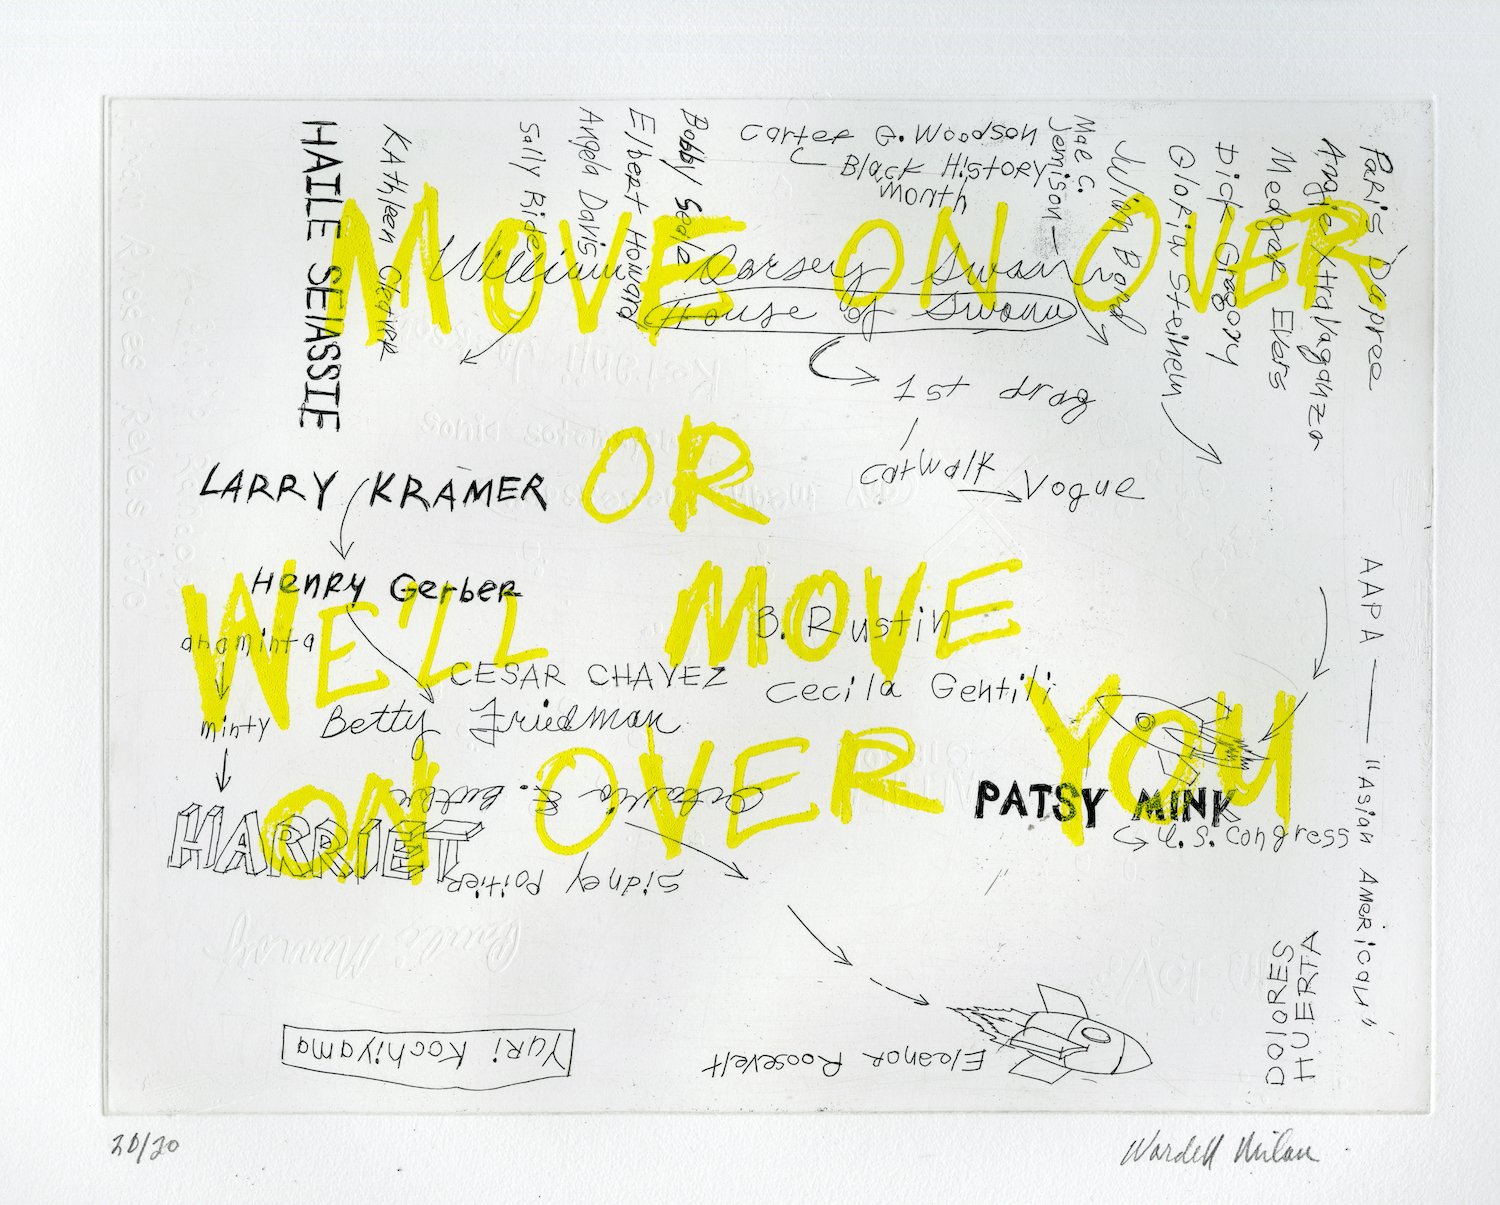 HAILE SElASSIE
KAthleen Cleaver
Sally Ride
Angela Davis
Elbert Howard
Bobby Seale
Carter G. Woodson
Black History
Month
Mae C.
Jemison
Julian Bond
Gloria Steinem
Dick Gregory
Medgar Evers
Angie Xtravaganza
Paris Dapree
MOVE ON OVER
William Dorsey Swann
House of Swann
1st drag
catwalk
Vogue
Ketanji
sonia sotomayor
OR
LARRY KRAMER
Henry Gerber
WE'LL MOVE
araminta
minty
HARRIET
B. Rustin
CESAR CHAVEZ
Cecila Gentili
Betty Friedman
ON OVER YOU
Octavia E. Butler
Sidney Poitier
PATSY MINK
U.S. Congress
AAPA — "Asian American"
DOlORES
HUERTA
Pauli Murray
Yuri Kochiyama
Eleanor Roosevelt
20/20
Wardell Milan